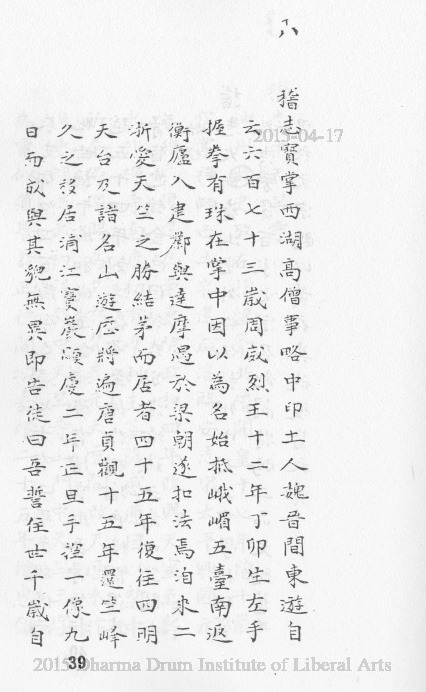 十八
稽志寶掌西湖高僧事略中印土人魏晉間東遊自
云六百七十三歲周威烈王十二年丁卯生左手
握拳有珠在掌中因以為名始抵峨嵋五臺南返
衡廬入建鄴與達摩遇於梁朝遂扣法焉洎來二
浙愛天竺之勝結茅而居者四十五年復往四明
天台及諸名山遊歷將遍唐貞觀十五年還竺峰
久之移居浦江寶嚴顯慶二年正旦手 一像九
日而成與其貌無異即告徒曰吾誓住世千歲自
2015-04-17
39
2015 Dharma Drum Institute of Liberal Arts